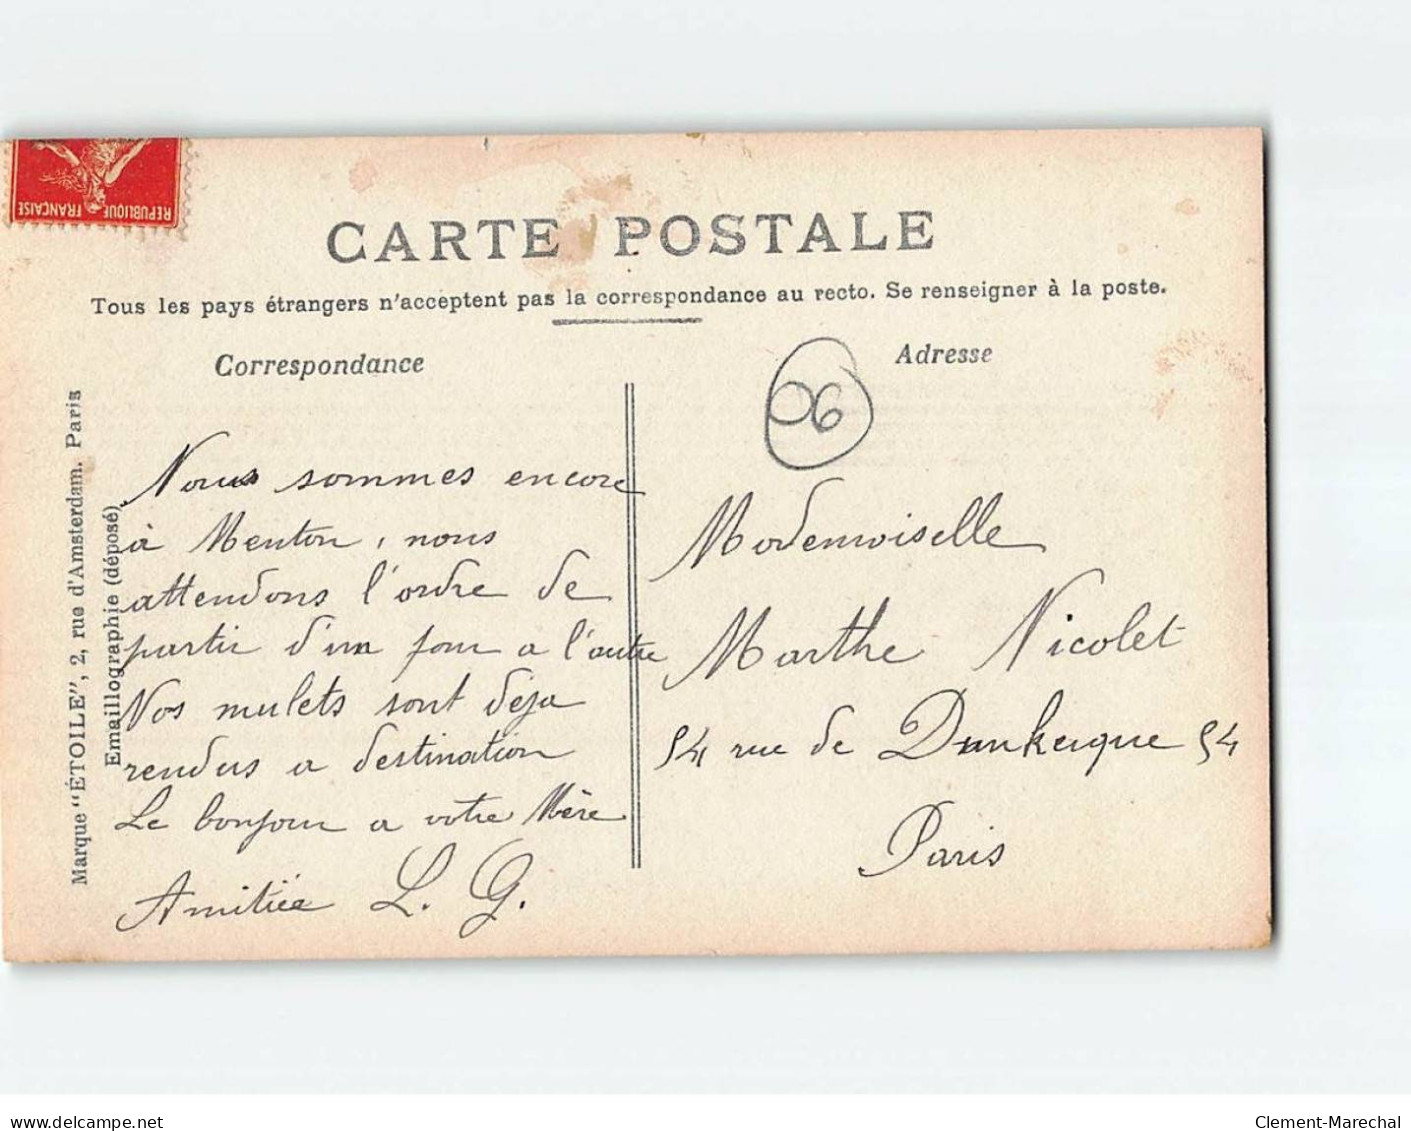 REPUBLIQUE FRANCAISE
CARTE POSTALE
Tous les pays étrangers n'acceptent pas la correspondance au recto. Se renseigner à la poste.
Correspondance
Adresse
06
Marque "ÉTOILE", 2, rue d'Amsterdam. Paris
Emaillographie (déposé)
Nous sommes encore
à Menton, nous
attendons l'ordre de
partir d'un jour a l'autre
Nos mulets sont déja
rendus a destination
Le bonjour a votre Mère
Amitiée L. G.
Mademoiselle
Marthe Nicolet
54 rue de Dunkerque 54
Paris
delcampe.net
Clement-Marechal